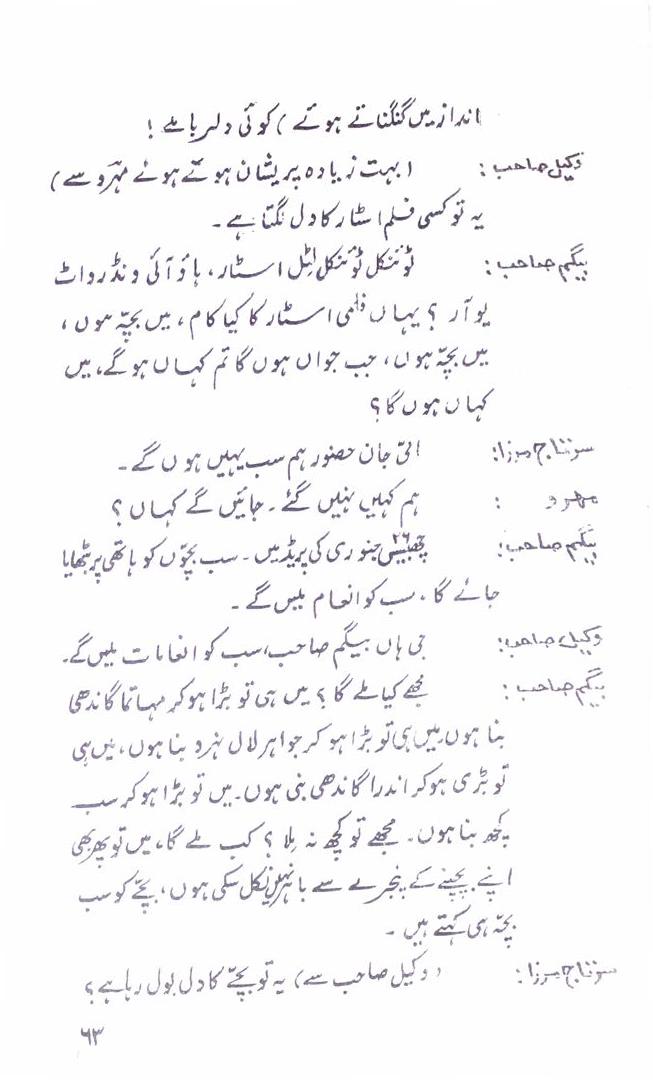 انداز میں گنگناتے ہوئے) کوئی دلربا ہے!
وکیل صاحب: (بہت زیادہ پریشان ہوتے ہوئے مہرو سے)
یہ تو کسی فلم اسٹار کا دل لگتا ہے۔
بیگم صاحب: ٹوئنکل ٹوئنکل لٹل اسٹار، ہاؤ آئی ونڈر واٹ
یو آر ؟ یہاں فلمی اسٹار کا کیا کام، میں بچہ ہوں،
میں بچہ ہوں، جب جواں ہوں گا تم کہاں ہوگے، میں
کہاں ہوں گا؟
سرتاج مرزا: امّی جان حضور ہم سب یہیں ہوں گے۔
مہرو : ہم کہیں نہیں گئے۔ جائیں گے کہاں ؟
بیگم صاحب: چھبیس ۲۶ جنوری کی پریڈ میں۔ سب بچوں کو ہاتھی پر بٹھایا
جائے گا، سب کو انعام ملیں گے۔
وکیل صاحب: جی ہاں بیگم صاحب، سب کو انعامات ملیں گے۔
بیگم صاحب: مجھے کیا ملے گا؟ میں ہی تو بڑا ہوکر مہاتما گاندھی
بنا ہوں میں ہی تو بڑا ہو کر جواہر لال نہرو بنا ہوں، میں ہی
تو بڑی ہوکر اندرا گاندھی بنی ہوں۔ میں تو بڑا ہوکر سب
کچھ بنا ہوں۔ مجھے تو کچھ نہ ملا ؟ کب ملے گا، میں تو پھر بھی
اپنے بچپنے کے پنجرے سے باہر نہیں نکل سکی ہوں، بچے کو سب
بچہ ہی کہتے ہیں۔
سرتاج مرزا: (وکیل صاحب سے) یہ تو بچے کا دل بول رہا ہے؟
۶۳